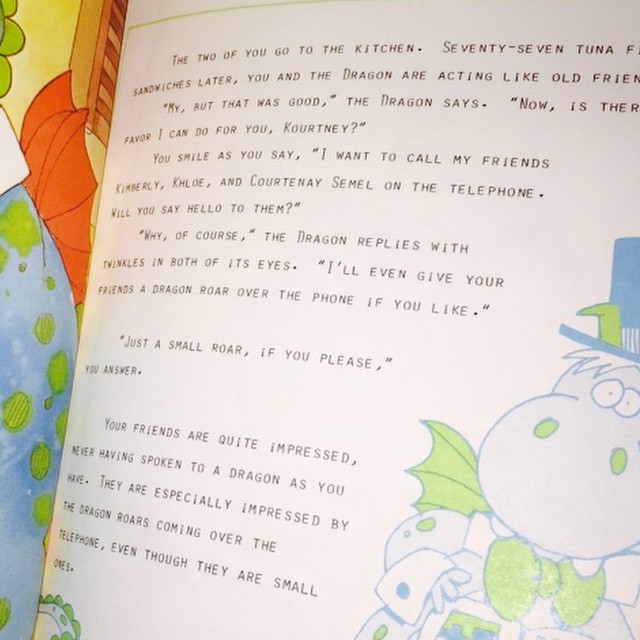 The two of you go to the kitchen. Seventy-seven tuna
sandwiches later, you and the Dragon are acting like old
"My, but that was good," the Dragon says. "Now, is
favor I can do for you, Kourtney?"
You smile as you say, "I want to call my friends
Kimberly, Khloe, and Courtenay Semel on the telephone.
Will you say hello to them?"
"Why, of course," the Dragon replies with
twinkles in both of its eyes. "I'll even give your
friends a dragon roar over the phone if you like."
"Just a small roar, if you please,"
you answer.
Your friends are quite impressed,
never having spoken to a dragon as you
have. They are especially impressed by
the dragon roars coming over the
telephone, even though they are small
ones.